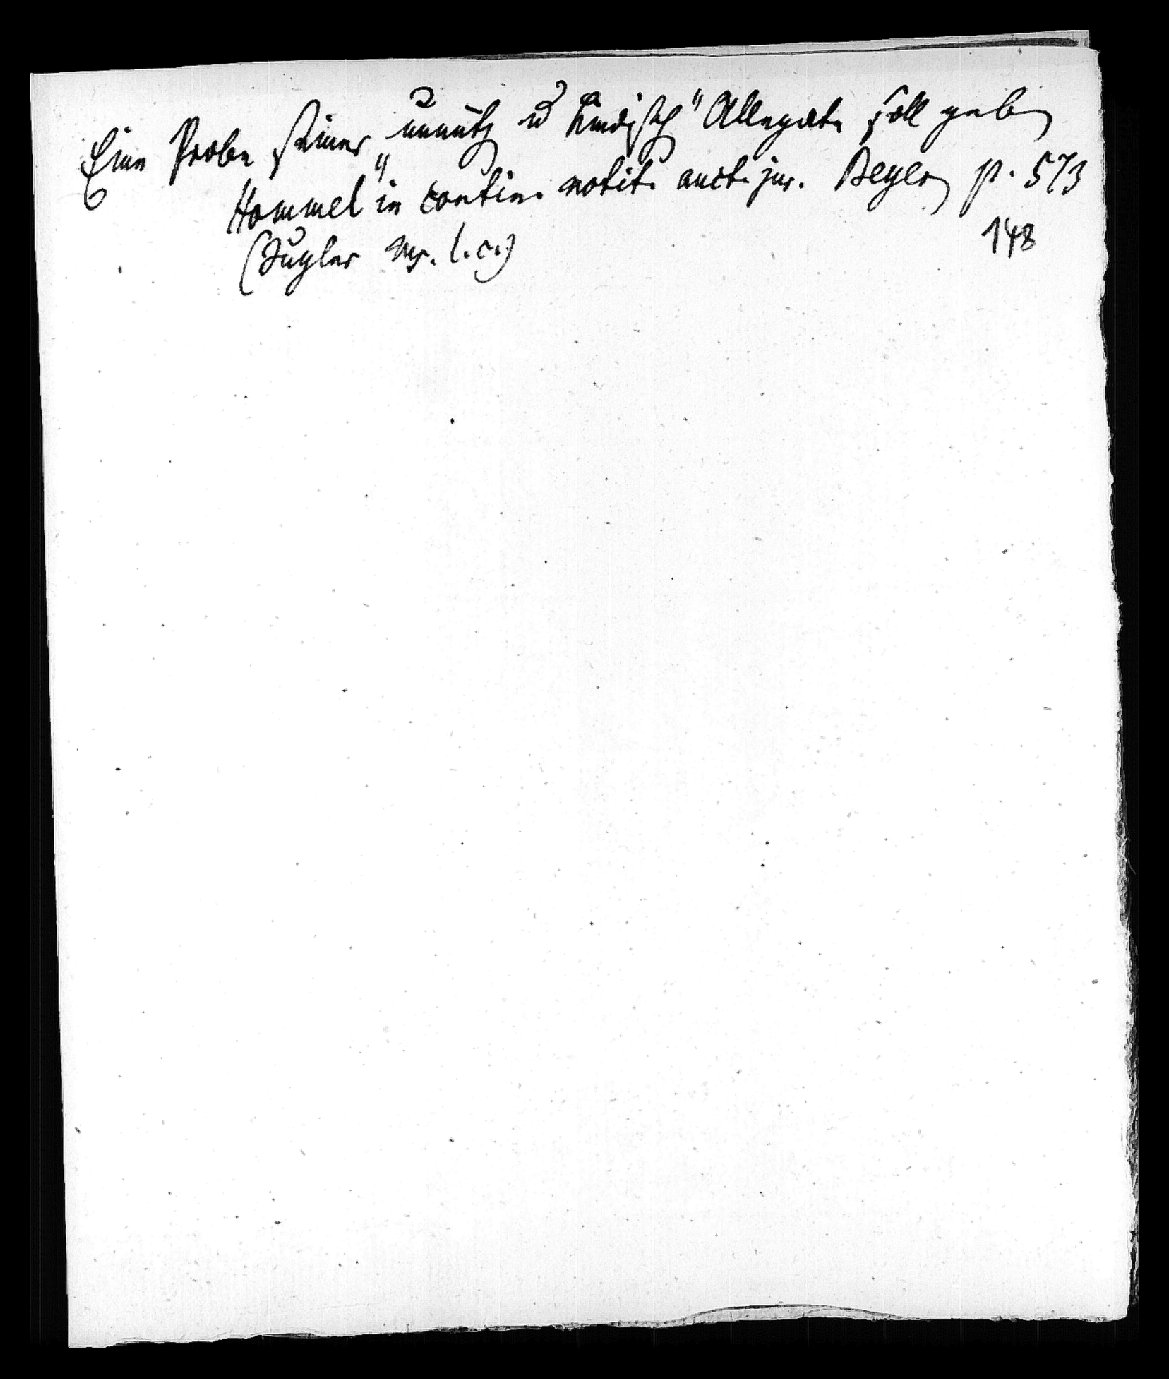 Eine Probe seiner „unnütz u kindisch" Allegate soll geben
Hommel in contin. notit. auct. jur. Beyer p. 573
(Jugler Ms. l. c.) 148